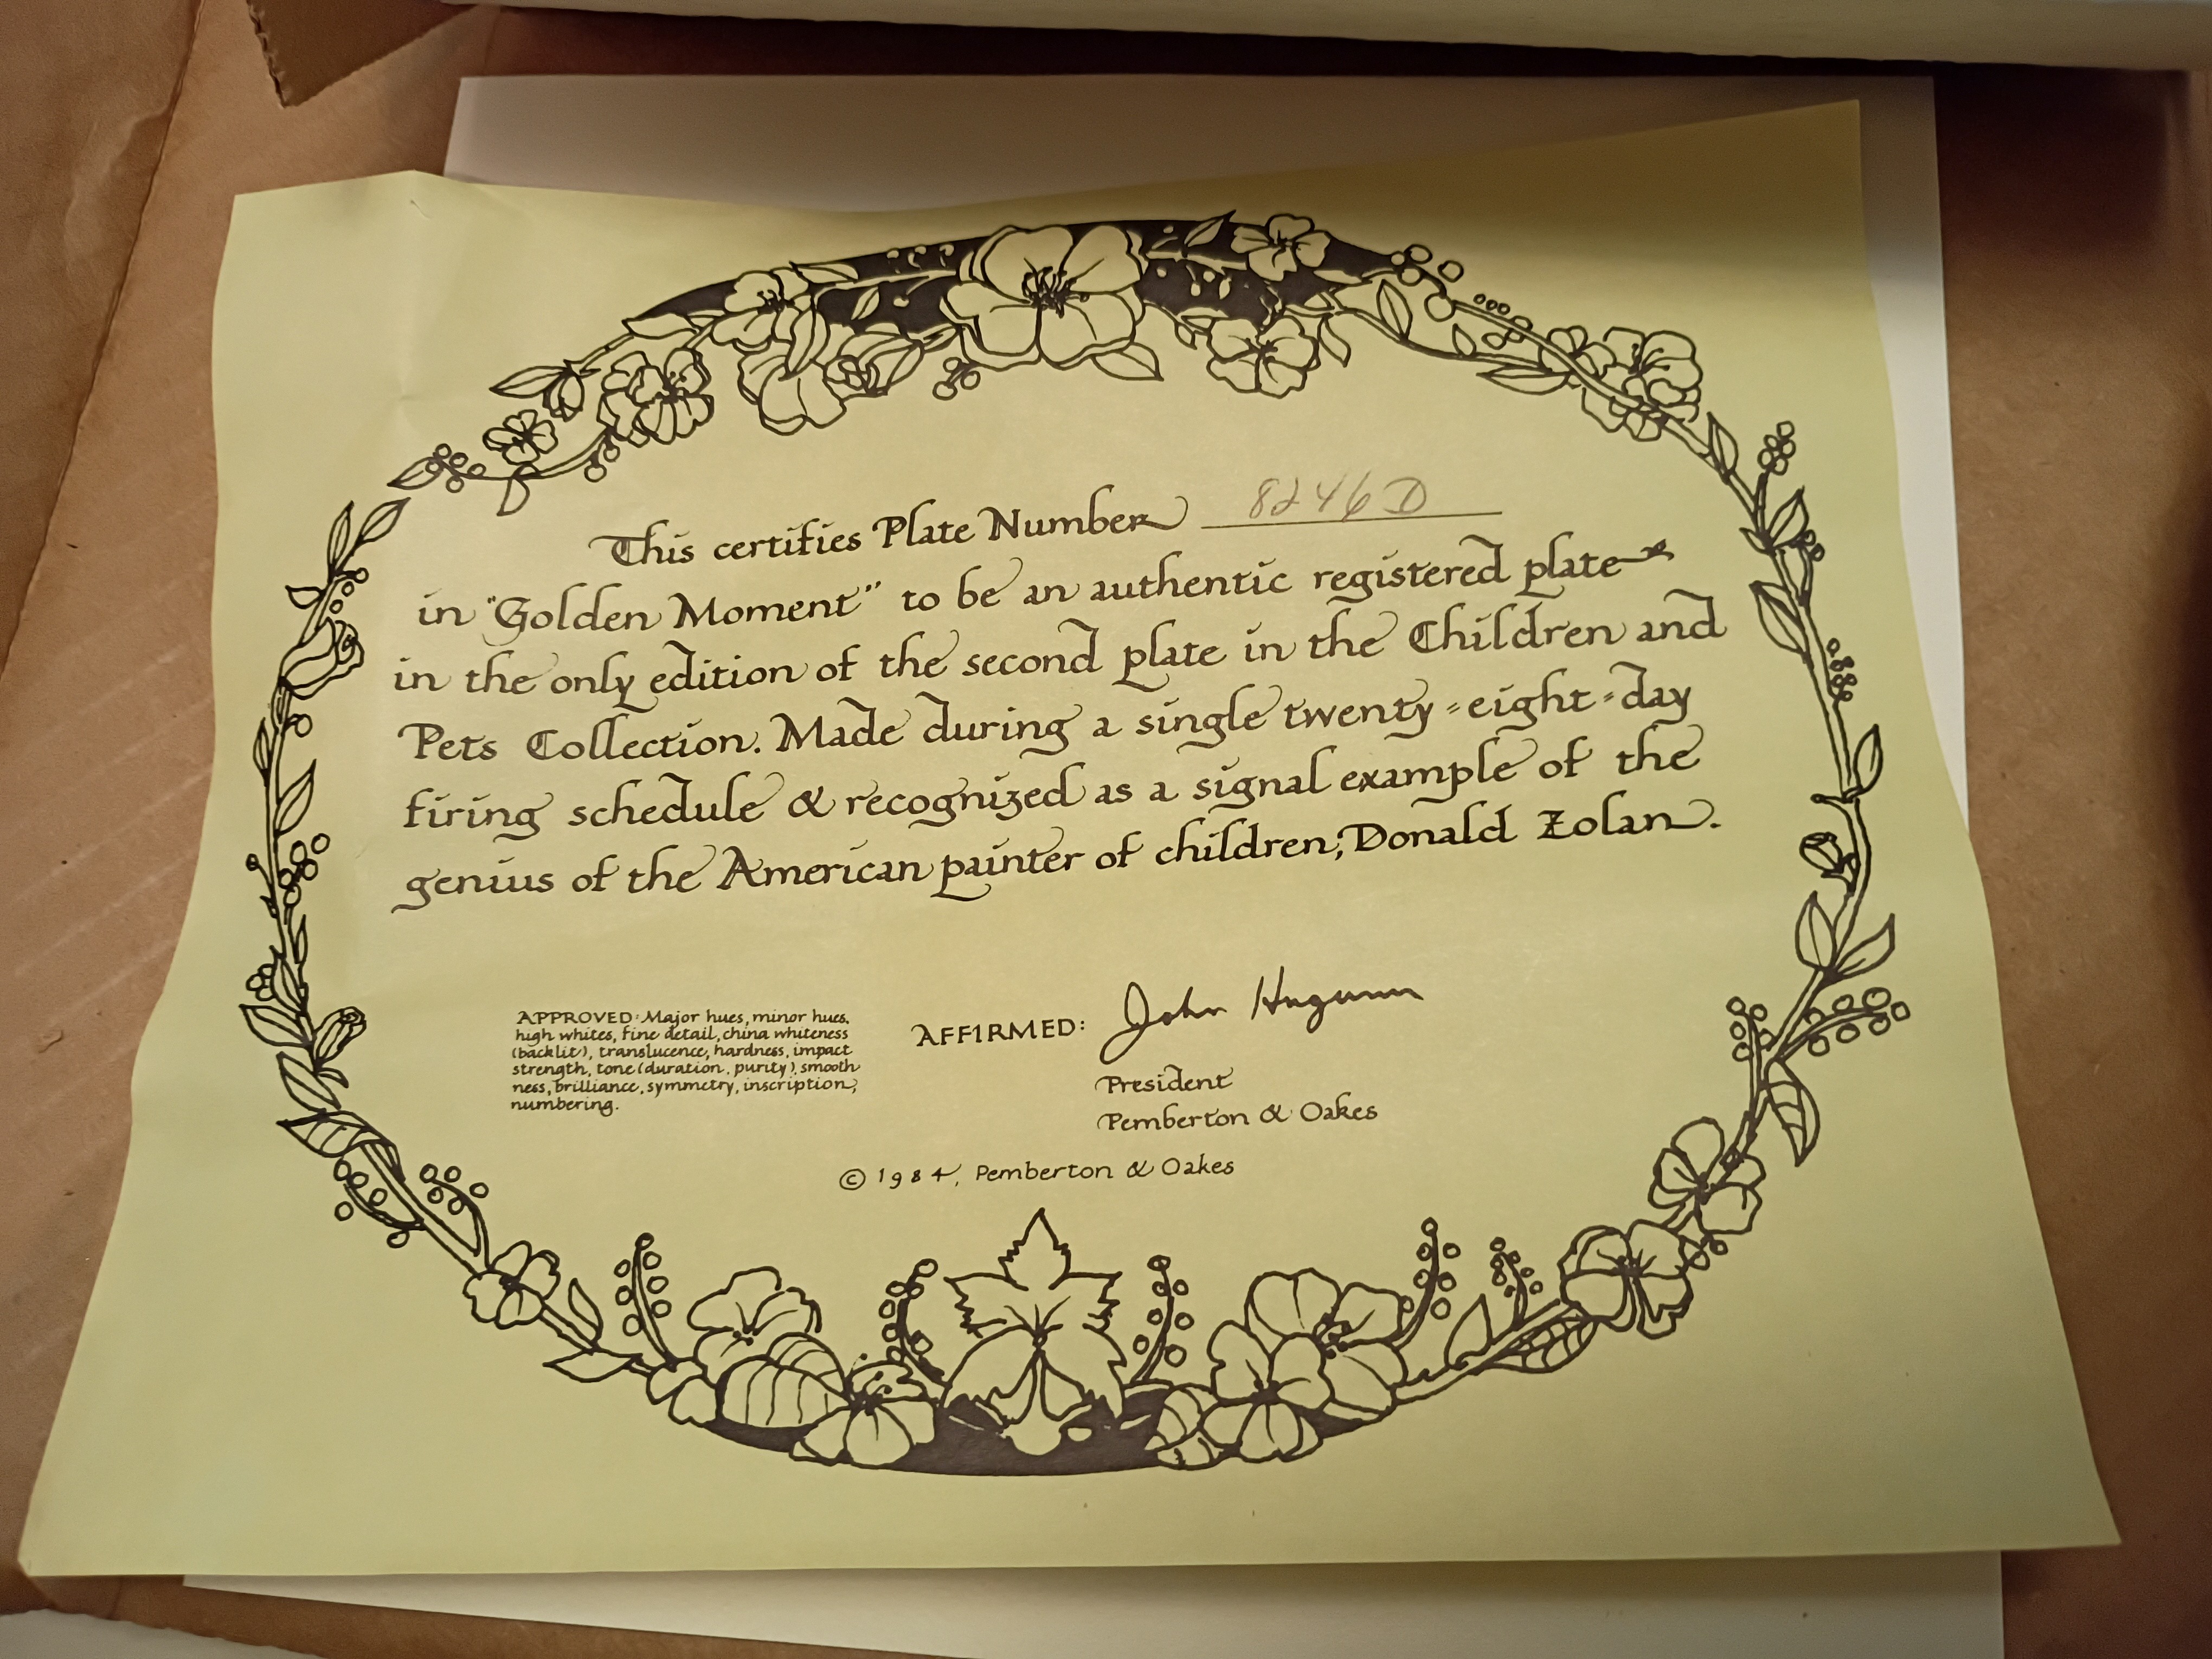 This certifies Plate Number 8246D
in "Golden Moment" to be an authentic registered plate
in the only edition of the second plate in the Children and
Pets Collection. Made during a single twenty-eight-day
firing schedule & recognized as a signal example of the
genius of the American painter of children, Donald Zolan.
APPROVED: Major hues, minor hues,
high whites, fine detail, china whiteness
(backlit), translucence, hardness, impact
strength, tone (duration, purity), smooth
ness, brilliance, symmetry, inscription,
numbering.
AFFIRMED: John Hugunin
President
Pemberton & Oakes
© 1984, Pemberton & Oakes